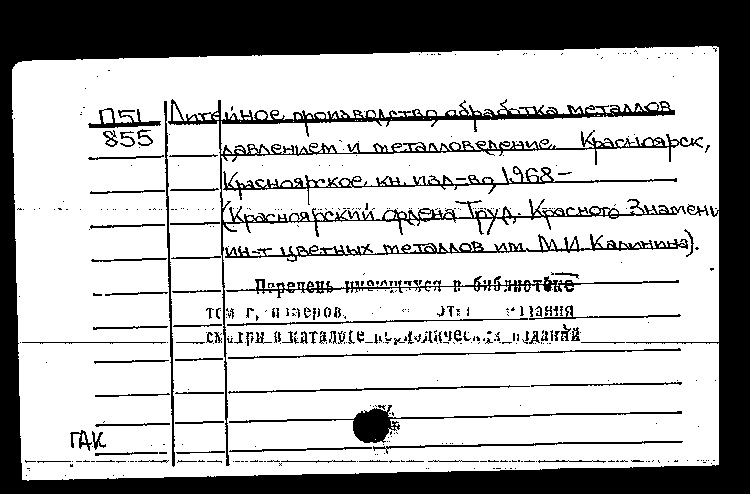 П51 Литейное производство, обработка металлов
855 давлением и металловедение. Красноярск,
Красноярское кн. изд-во, 1968 –
(Красноярский ордена Труд. Красного Знамени
ин-т цветных металлов им. М.И. Калинина).
Перечень имеющихся в библиотеке
издания
смотри в каталоге периодических изданий
ГАК